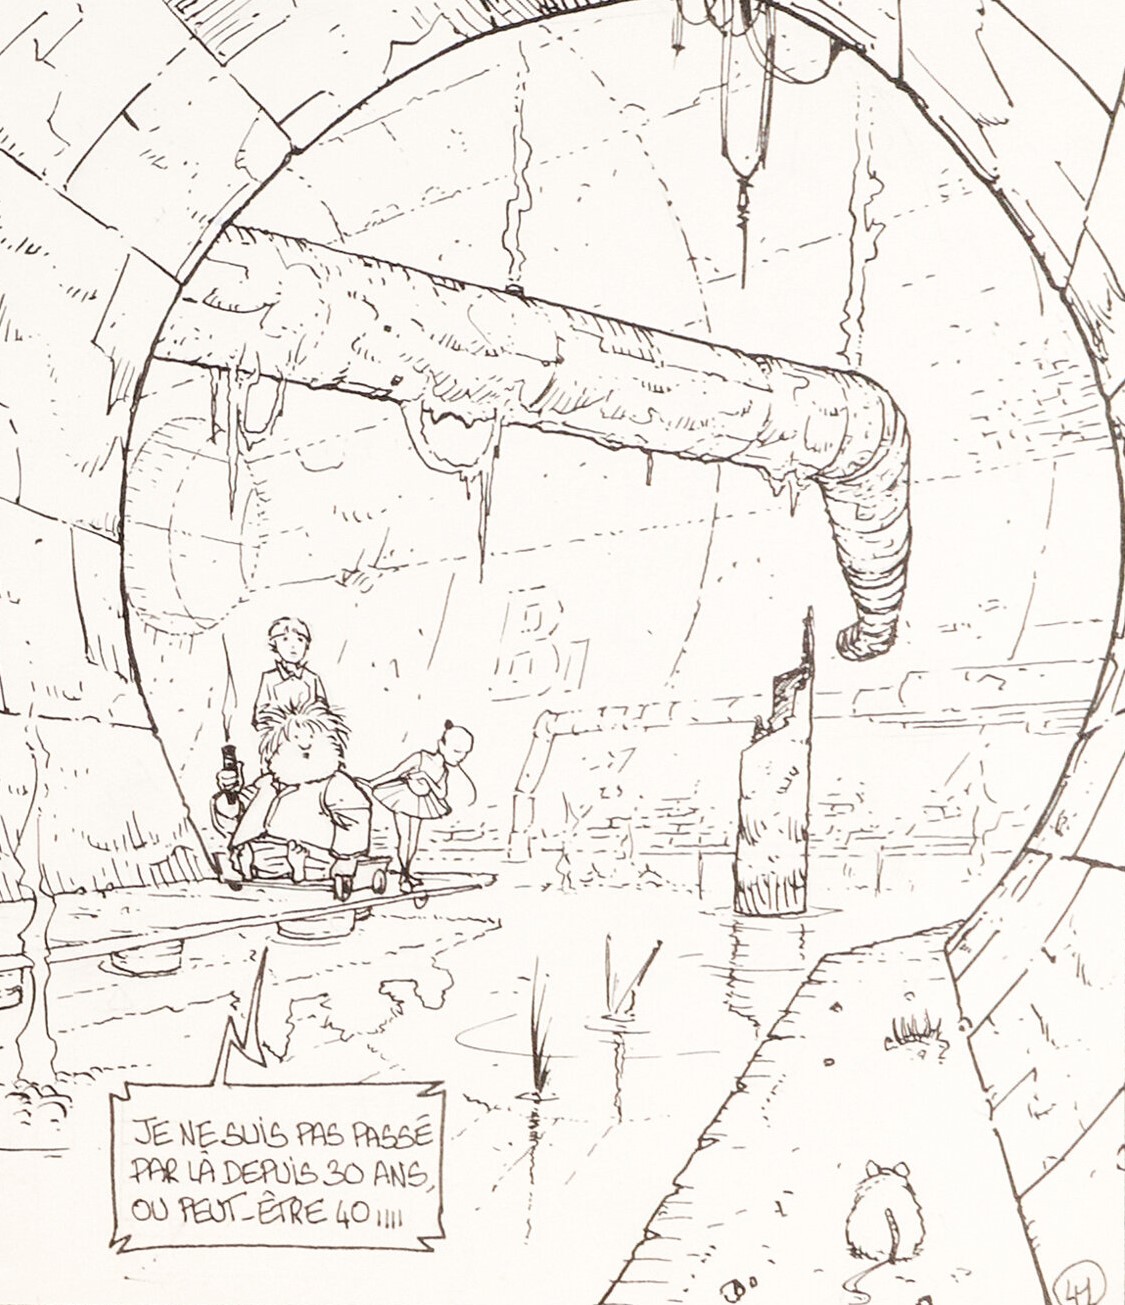 B1
JE NE SUIS PAS PASSÉ
PAR LÀ DEPUIS 30 ANS,
OU PEUT-ÊTRE 40 !!!!
41